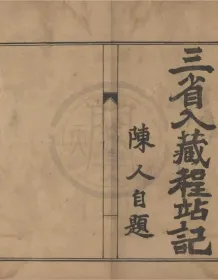 三省入藏程站記
陳人自題